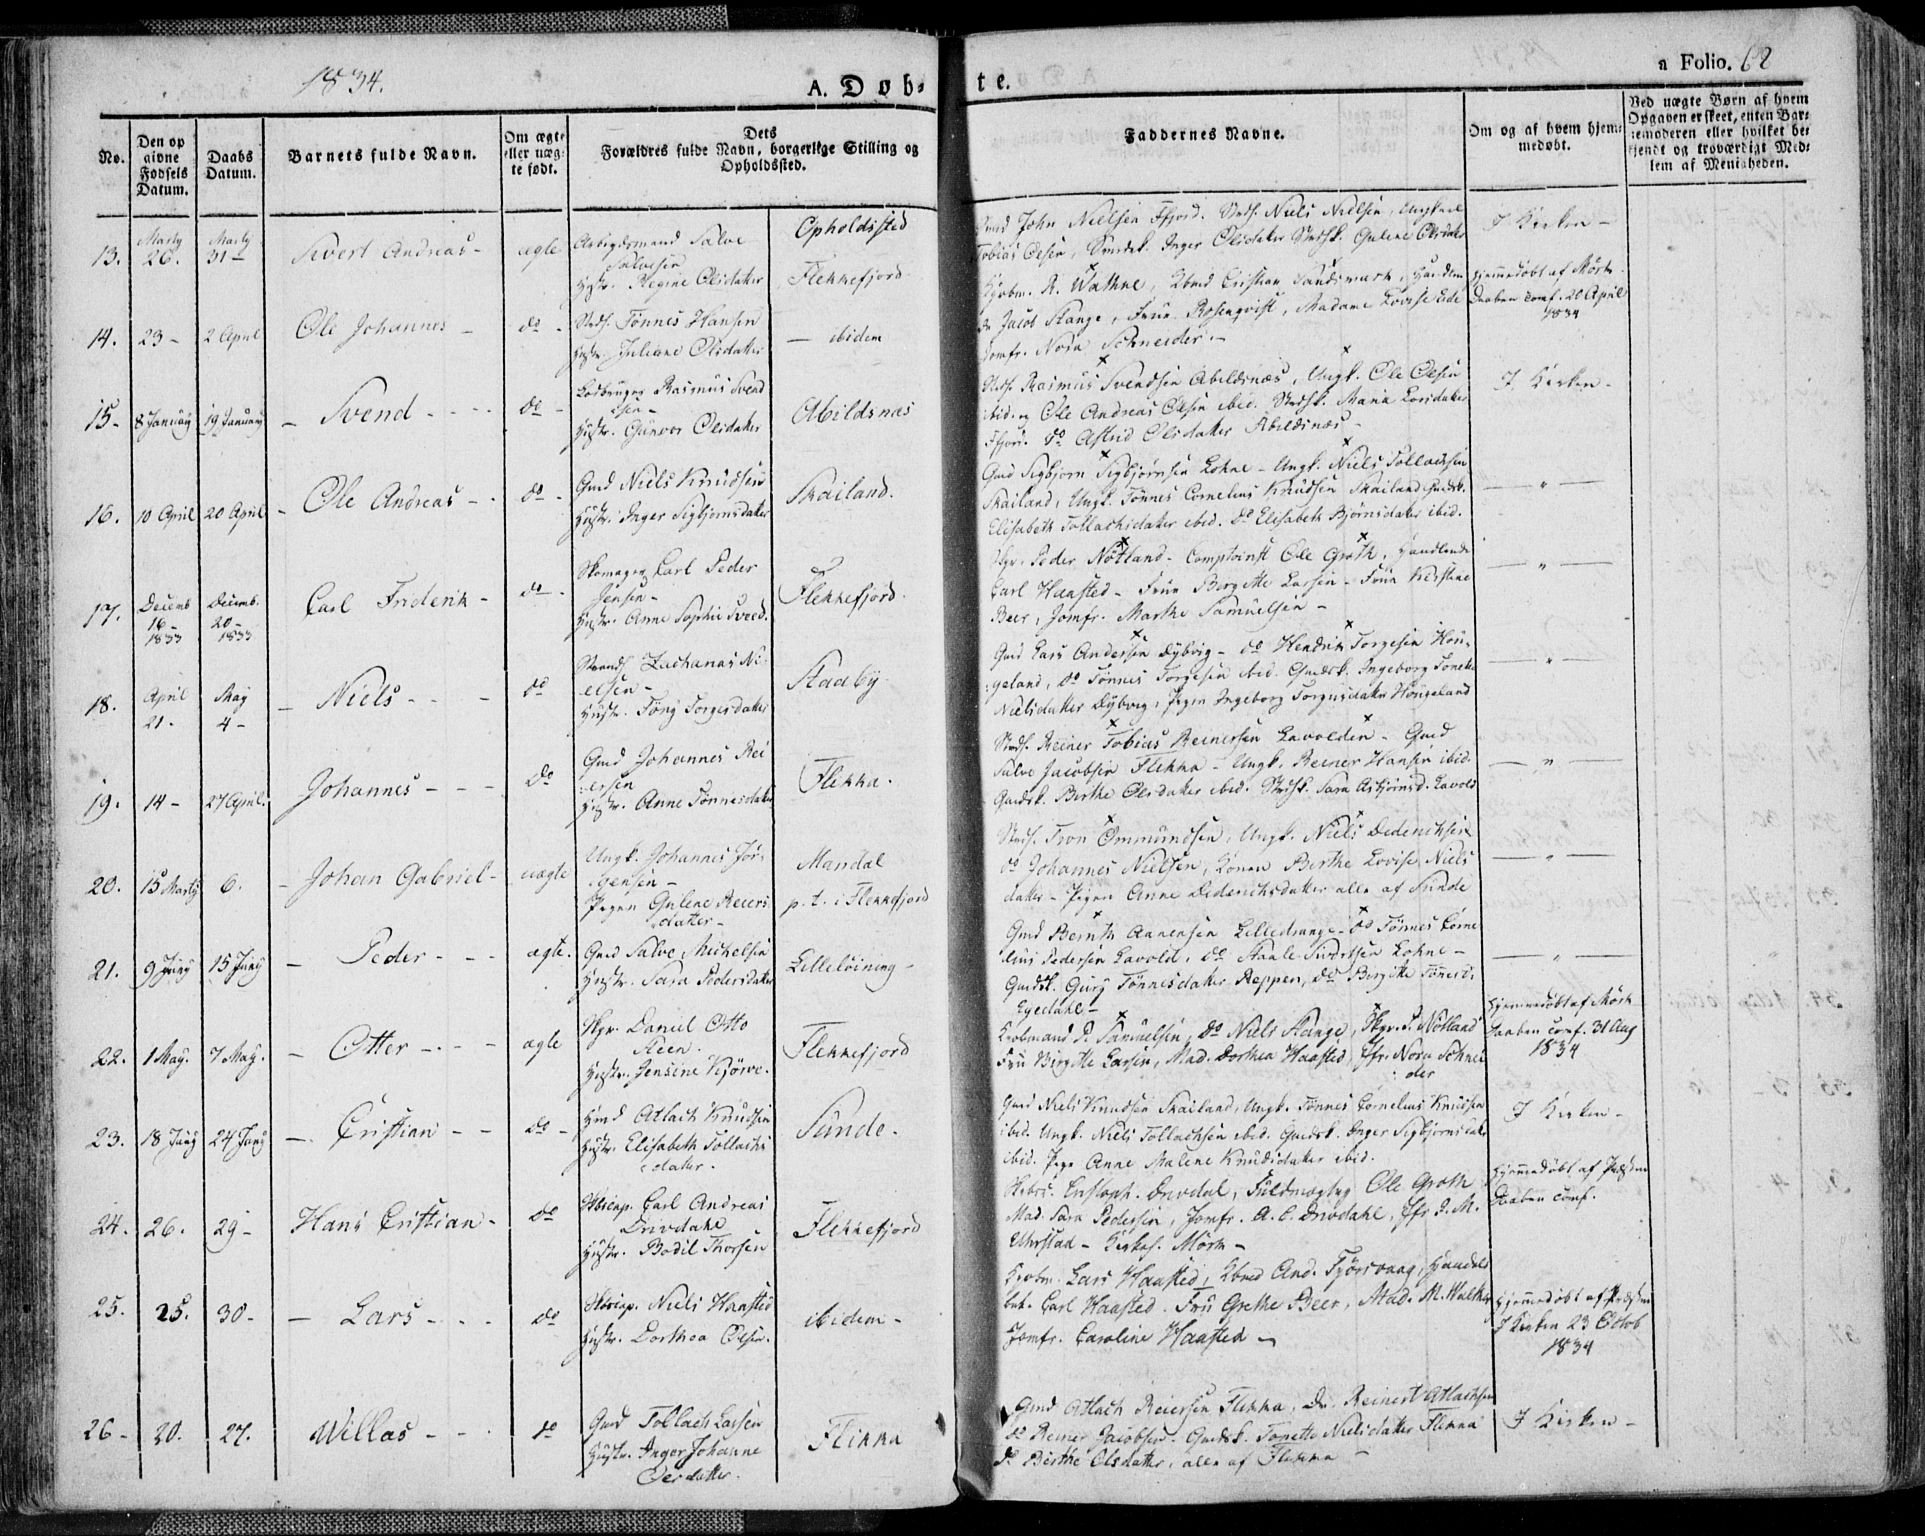 1834.
A. Døb-
te.
a Folio. 62
No.
Den op
givne
Fødsels
Datum.
Daabs
Datum.
Barnets fulde Navn.
Om ægte
eller uæg-
te født.
Dets
Forældres fulde Navn, borgerlige Stilling og
Opholdssted.
Faddernes Navne.
Om og af hvem hjem-
medøbt.
Ved uægte Børn af hvem
Opgaven er skeet, enten Bar-
nemoderen eller hvilket be-
kjendt og troværdigt Med-
lem af Menigheden.
Opholdssted
13.
Marty
26.
Marty
31
Sivert Andreas
ægte
Arbeidsmand Salve
Salvesen
Hustr. Regine Olsdatter
Flekkefjord
John Nielsen Fjord. Niels Nielsen, Ungkarl
Tobias Olsen, Inger Olsdatter Gulene Olsdatter
I Kirken
14.
23
2 April
Ole Johannes
do
Tønnes Hansen
Hustr. Juliane Olsdatter
ibidem
Kjøbm. R. Wathne, Cristian Sandsmark,
Jacob Stange, Frue Rosenqvist, Madame Lovise Eide
Jomfr. Nora Schneider
Hjemmedøbt af Mørk
Daaben conf. 20 April
1834
15
8 January
19 January
Svend
do
Rasmus Svend
sen
Hustr. Gunvor Olsdatter
Abildsnæs
Rasmus Svendsen Abildsnæs, Ungk. Ole Olsen
ibid. og Ole Andreas Olsen ibid. Maria Larsdatter
Fjord. do Astrid Olsdatter Abildsnæs
I Kirken
16.
10 April
20 April
Ole Andreas
do
Gmd Niels Knudsen
Hustr. Inger Sigbjørnsdatter
Skailand.
Gmd Sigbjørn Sigbjørnsen Lohne - Ungk. Niels Tollachsen
Skailand, Ungk. Tønnes Cornelius Knudsen Skailand
Elisabeth Tollachsdatter ibid. do Elisabeth Bjørnsdatter ibid.
"
17.
Decemb
16
1833
Decemb.
20
1833
Carl Friderik
do
Skomager Carl Peder
Jensen
Hustr. Anne Sophie Sveed.
Flekkefjord.
Peder Nøtland - Comptoirist Ole Groth, Handlende
Carl Haasted - Frue Birgitte Larsen - Frue Kirstine
Beer, Jomfr. Marthe Samuelsen
"
18.
April
21.
May
4
Niels
do
Zacharias Ni-
elsen
Hustr. Tony Torgersdatter
Staaby
Gmd Lars Andersen Dybvig - do Hendrik Torgesen Hou-
geland, do Tønnes Torgesen ibid. Ingeborg Tonette
Nielsdatter Dybvig, Pigen Ingeborg Torgersdatter Hougeland
"
19.
14
27 April.
Johannes
do
Gmd Johannes Rei-
ersen
Hustr. Anne Tønnesdatter
Flekka.
Reiner Tobias Reinersen Lavolden - Gmd
Salve Jacobsen Flikka - Ungk. Reiner Hansen ibid.
Berthe Olsdatter ibid. Sara Asbjørnsd. Lavold
"
20.
15 Marty
6.
Johan Gabriel
uægte
Ungk. Johannes Jør-
gensen
Pigen Gulene Reiers-
datter
Mandal
p. t. i Flekkefjord
Tron Ommundsen, Ungk. Niels Dedericksen
do Johannes Nielsen, Konen Berthe Lovise Niels
datter - Pigen Anne Dedericksdatter alle af Sunde
"
21.
9 Juny
15 Juny
Peder
ægte.
Gmd Salve Michelsen
Hustr. Sara Pedersdatter
Lilleløining
Gmd Bernth Aanensen Lilledrange - do Tønnes Corne
lius Pedersen Lavold, do Staale Sivertsen Lohne
Gury Tønnesdatter Reppen, do Birgitte Tønnesd.
Egedahl
"
22.
1 May.
7 May.
Otter
ægte
Skpr. Daniel Otto
Steen.
Hustr. Jensine Kjørve.
Flekkefjord
Kjøbmand P. Samuelsen, do Niels Stange, Skpr. P. Nøtland
Fru Birgitte Larsen, Mad. Dorthea Haasted, Jfr. Nora Schnei
der
Hjemmedøbt af Mørk
Daaben conf. 31 Aug
1834
23.
18 Juny
24 Juny
Cristian
do
Atlach Knudsen
Hustr. Elisabeth Tollachs
datter.
Sunde.
Gmd Niels Knudsen Skailand, Ungk. Tønnes Cornelius Knudsen
ibid. Ungk. Niels Tollachsen ibid. Inger Sigbjørnsdatter
ibid. Pige Anne Malene Knudsdatter ibid.
I Kirken
24.
26.
29
Hans Cristian
do
Carl Andreas
Drivdahl
Hustr. Bodil Thorsen
Flekkefjord
Cristoph. Drivdal, Fuldmægtig Ole Groth
Mad. Sara Pedersen, Jomfr. A. C. Drivdahl, Jfr. J. M.
Uhrstad - Mørk
Hjemmedøbt af Præsten
Daaben conf.
25.
25.
30
Lars
do
Niels Haasted
Hustr. Dorthea Olsen.
ibidem
Kjøbm. Lars Haasted, And. Tjørsvaag, Handels
bet. Carl Haasted. Fru Grethe Beer, Mad. M. Walker
Jomfr. Caroline Haasted
Hjemmedøbt af Præsten
I Kirken 23 Octob
1834
26
20.
27.
Willas
do
Gmd Tollach Larsen
Hustr. Inger Johanne
Osesdatter.
Flikka
Gmd Atlach Reiersen Flikka, Do. Reinert Atlachsen
do Reiner Jacobsen. Tonette Nielsdatter Flikka
do. Birthe Olsdatter, alle af Flikka
I Kirken